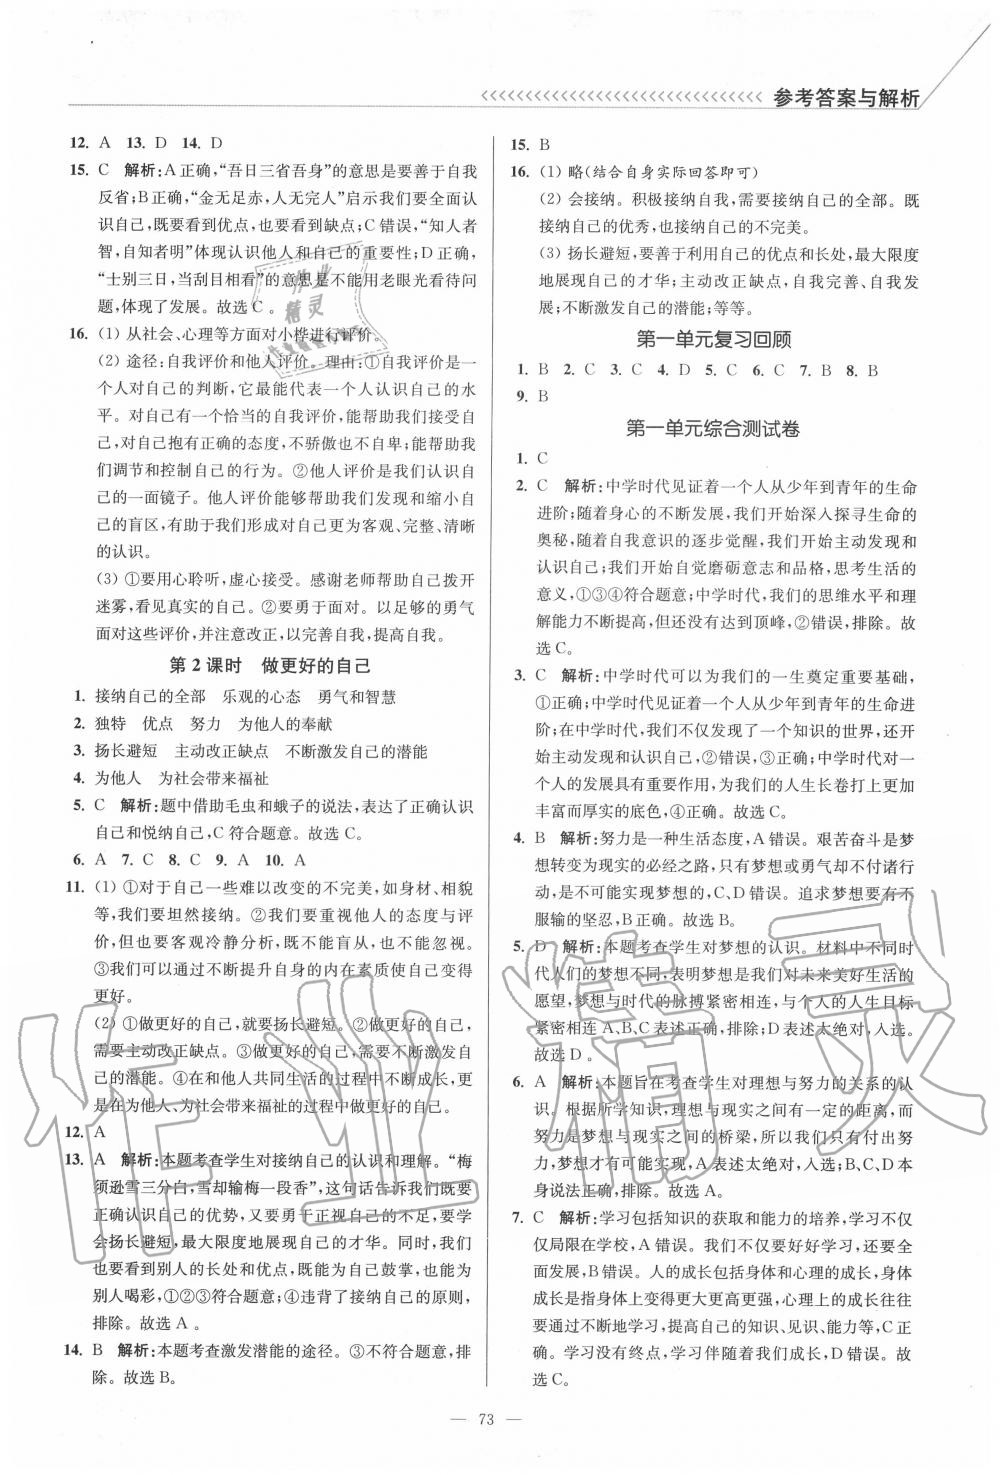 参考答案与解析
12. A 13. D 14. D
15. C 解析:A正确,“吾日三省吾身”的意思是要善于自我
反省;B正确,“金无足赤,人无完人”启示我们要全面认
识自己,既要看到优点,也要看到缺点;C错误,“知人者
智,自知者明”体现认识他人和自己的重要性;D正确,
“士别三日,当刮目相看”的意思是不能用老眼光看待问
题,体现了发展。故选C。
16. (1) 从社会、心理等方面对小桦进行评价。
(2) 途径:自我评价和他人评价。理由:①自我评价是一
个人对自己的判断,它最能代表一个人认识自己的水
平。对自己有一个恰当的自我评价,能帮助我们接受自
己,对自己抱有正确的态度,不骄傲也不自卑;能帮助我
们调节和控制自己的行为。②他人评价是我们认识自
己的一面镜子。他人评价能够帮助我们发现和缩小自
己的盲区,有助于我们形成对自己更为客观、完整、清晰
的认识。
(3) ①要用心聆听,虚心接受。感谢老师帮助自己拨开
迷雾,看见真实的自己。②要勇于面对。以足够的勇气
面对这些评价,并注意改正,以完善自我,提高自我。
第2课时 做更好的自己
1. 接纳自己的全部 乐观的心态 勇气和智慧
2. 独特 优点 努力 为他人的奉献
3. 扬长避短 主动改正缺点 不断激发自己的潜能
4. 为他人 为社会带来福祉
5. C 解析:题中借助毛虫和蛾子的说法,表达了正确认识
自己和悦纳自己,C符合题意。故选C。
6. A 7. C 8. C 9. A 10. A
11. (1) ①对于自己一些难以改变的不完美,如身材、相貌
等,我们要坦然接纳。②我们要重视他人的态度与评
价,但也要客观冷静分析,既不能盲从,也不能忽视。
③我们可以通过不断提升自身的内在素质使自己变得
更好。
(2) ①做更好的自己,就要扬长避短。②做更好的自己,
需要主动改正缺点。③做更好的自己,需要不断激发自
己的潜能。④在和他人共同生活的过程中不断成长,更
是在为他人、为社会带来福祉的过程中做更好的自己。
12. A
13. A 解析:本题考查学生对接纳自己的认识和理解。“梅
须逊雪三分白,雪却输梅一段香”,这句话告诉我们既要
正确认识自己的优势,又要勇于正视自己的不足,要学
会扬长避短,最大限度地展现自己的才华。同时,我们
也要看到别人的长处和优点,既能为自己鼓掌,也能为
别人喝彩,①②③符合题意;④违背了接纳自己的原则,
排除。故选A。
14. B 解析:本题考查激发潜能的途径。③不符合题意,排
除。故选B。
15. B
16. (1) 略(结合自身实际回答即可)
(2) 会接纳。积极接纳自我,需要接纳自己的全部。既
接纳自己的优秀,也接纳自己的不完美。
(3) 扬长避短,要善于利用自己的优点和长处,最大限度
地展现自己的才华;主动改正缺点,自我完善、自我发
展;不断激发自己的潜能;等等。
第一单元复习回顾
1. B 2. C 3. C 4. D 5. C 6. C 7. B 8. B
9. B
第一单元综合测试卷
1. C
2. C 解析:中学时代见证着一个人从少年到青年的生命
进阶;随着身心的不断发展,我们开始深入探寻生命的
奥秘,随着自我意识的逐步觉醒,我们开始主动发现和
认识自己;我们开始自觉磨砺意志和品格,思考生活的
意义,①③④符合题意;中学时代,我们的思维水平和理
解能力不断提高,但没有达到顶峰,②错误,排除。故
选C。
3. C 解析:中学时代可以为我们的一生奠定重要基础,
①正确;中学时代见证着一个人从少年到青年的生命进
阶;在中学时代,我们不仅发现了一个知识的世界,还开
始主动发现和认识自己,②错误,③正确;中学时代对一
个人的发展具有重要作用,为我们的人生长卷打上更加
丰富而厚实的底色,④正确。故选C。
4. B 解析:努力是一种生活态度,A错误。艰苦奋斗是梦
想转变为现实的必经之路,只有梦想或勇气却不付诸行
动,是不可能实现梦想的,C、D错误。追求梦想要有不
服输的坚忍,B正确。故选B。
5. D 解析:本题考查学生对梦想的认识。材料中不同时
代人们的梦想不同,表明梦想是我们对未来美好生活的
愿望,梦想与时代的脉搏紧密相连,与个人的人生目标
紧密相连,A、B、C表述正确,排除;D表述太绝对,入选。
故选D。
6. A 解析:本题旨在考查学生对理想与努力的关系的认
识。根据所学知识,理想与现实之间有一定的距离,而
努力是梦想与现实之间的桥梁,所以我们只有付出努
力,梦想才有可能实现,A表述太绝对,入选;B、C、D本
身说法正确,排除。故选A。
7. C 解析:学习包括知识的获取和能力的培养,学习不仅
仅局限在学校,A错误。我们不仅要好好学习,还要全
面发展,B错误。人的成长包括身体和心理的成长,身体
成长是指身体上变得更大更高更强,心理上的成长往往
要通过不断地学习,变得更加的有知识、见识、能力等,C
正确。学习没有终点,学习伴随着我们成长,D错误。故
选C。
— 73 —
作业
精灵
作业精灵